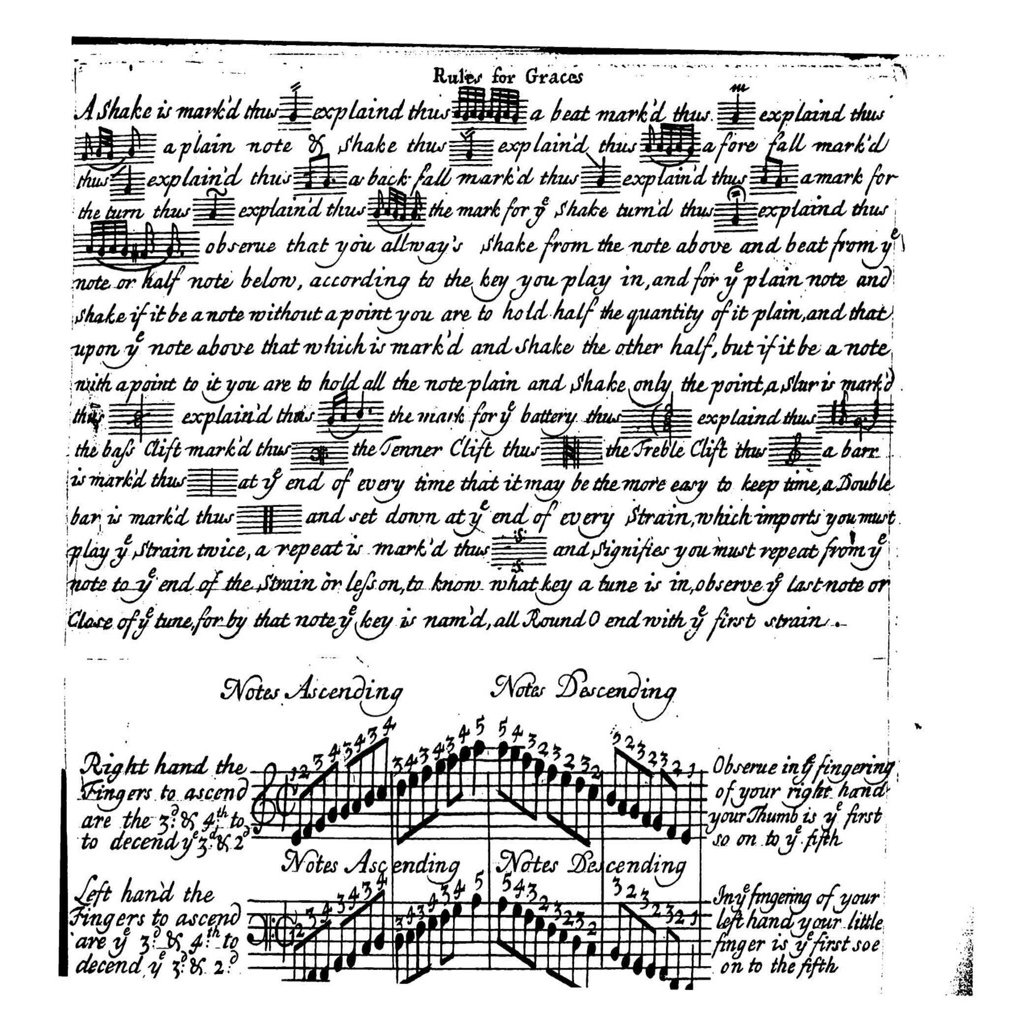 Rules for Graces
A Shake is mark'd thus explaind thus a beat mark'd thus explaind thus
a plain note & Shake thus explain'd thus a fore fall mark'd
thus explain'd thus a back fall mark'd thus explain'd thus a mark for
the turn thus explain'd thus the mark for ye Shake turn'd thus explain'd thus
observe that you allway's shake from the note above and beat from ye
note or half note below, according to the key you play in, and for ye plain note and
shake if it be a note without a point you are to hold half the quantity of it plain, and that
upon ye note above that which is mark'd and Shake the other half, but if it be a note
with a point to it you are to hold all the note plain and Shake only the point, a Slur is mark'd
thus explain'd thus the mark for ye battery thus explaind thus
the bass Clift mark'd thus the Tenner Clift thus the Treble Clift thus a barr
is mark'd thus at ye end of every time that it may be the more easy to keep time, a Double
bar is mark'd thus and set down at ye end of every Strain, which imports you must
play ye Strain twice, a repeat is mark'd thus and Signifies you must repeat from ye
note to ye end of the Strain or lesson, to know what key a tune is in, observe ye last note or
Close of ye tune, for by that note ye key is nam'd, all Round O end with ye first strain.
Notes Ascending Notes Descending
1 2 3 4 3 4 3 4 3 4 3 4 3 4 5 5 4 3 2 3 2 3 2 3 2 3 2 1
Right hand the
Fingers to ascend
are the 3d. & 4th to
to decend ye 3d & 2d
Observe in ye fingering
of your right hand
your Thumb is ye first
so on to ye fifth
Notes Ascending Notes Descending
1 2 3 4 3 4 3 4 3 4 3 4 3 4 5 5 4 3 2 3 2 3 2 3 2 3 2 1
Left hand the
Fingers to ascend
are ye 3d & 4th to
decend ye 3d & 2d
In ye fingering of your
left hand your little
finger is ye first soe
on to the fifth